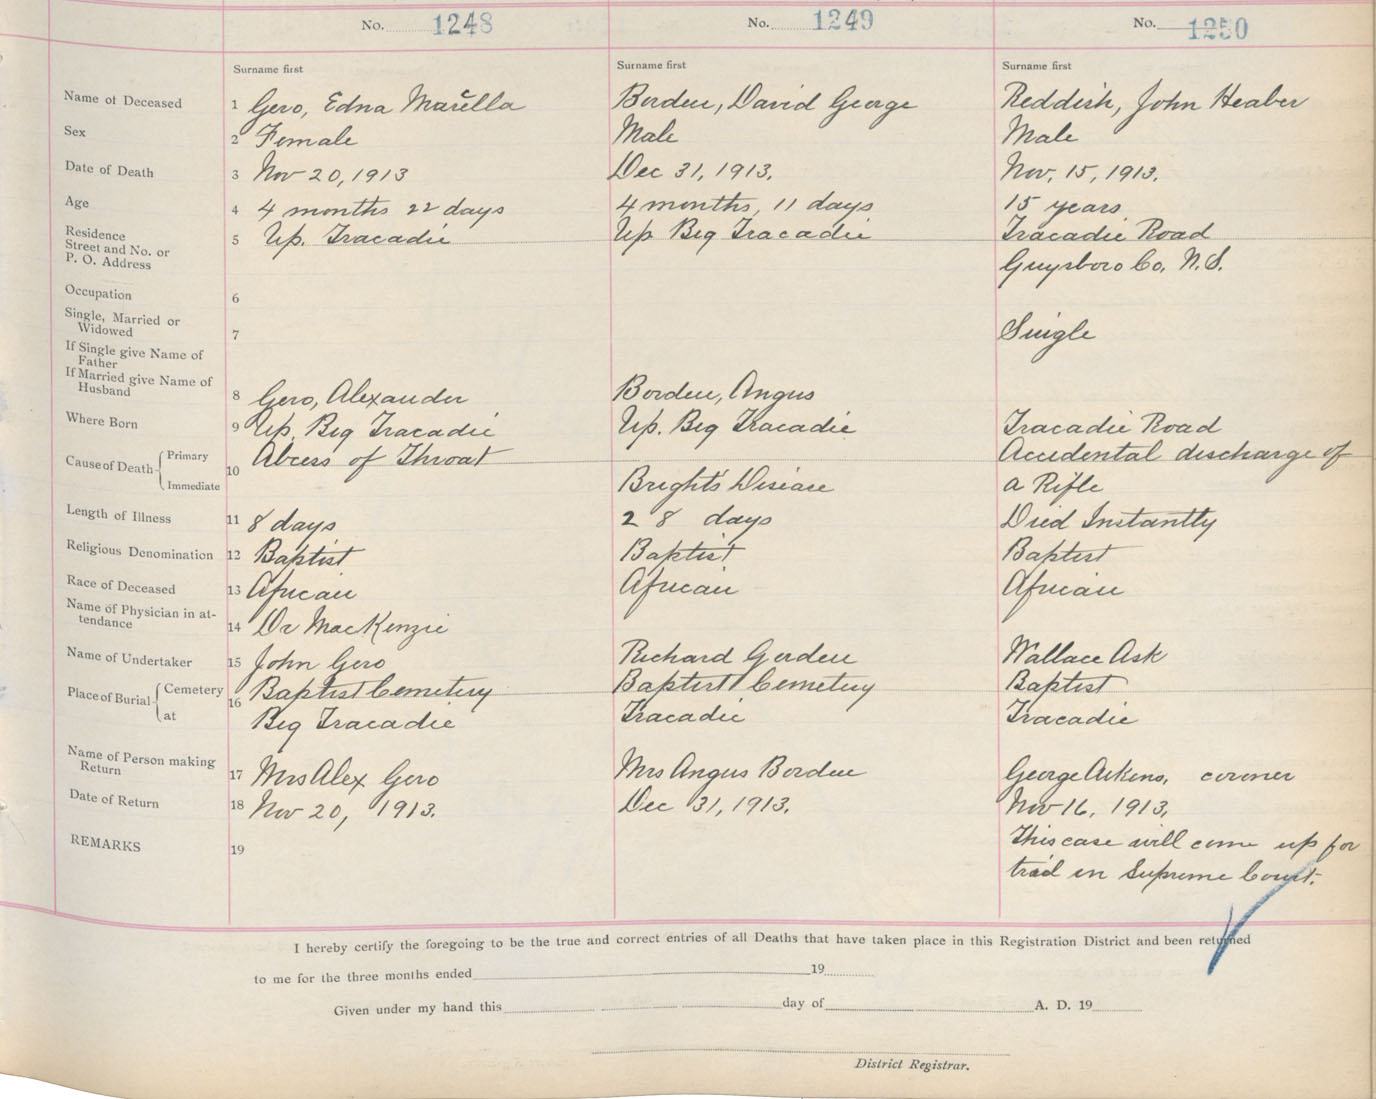 No. 1248 No. 1249 No. 1250
Surname first Surname first Surname first
Name of Deceased 1 Gero, Edna Marella Borden, David George Reddish, John Heaber
Sex 2 Female Male Male
Date of Death 3 Nov 20, 1913 Dec 31, 1913. Nov. 15, 1913.
Age 4 4 months 22 days 4 months, 11 days 15 years
Residence
Street and No. or 5 Up. Tracadie Up Big Tracadie Tracadie Road
P. O. Address Guysboro Co. N.S.
Occupation 6
Single, Married or
Widowed 7 Single
If Single give Name of
Father
If Married give Name of
Husband 8 Gero, Alexander Borden, Angus
Where Born 9 Up. Big Tracadie Up. Big Tracadie Tracadie Road
Cause of Death Primary 10 Abcess of Throat Accidental discharge of
Immediate Bright's Disease a Rifle
Length of Illness 11 8 days 28 days Died Instantly
Religious Denomination 12 Baptist Baptist Baptist
Race of Deceased 13 African African African
Name of Physician in at-
tendance 14 Dr MacKenzie
Name of Undertaker 15 John Gero Richard Gerden Wallace Ask
Place of Burial Cemetery 16 Baptist Cemetery Baptist Cemetery Baptist
at Big Tracadie Tracadie Tracadie
Name of Person making
Return 17 Mrs Alex Gero Mrs Angus Borden George Aikens, coroner
Date of Return 18 Nov 20, 1913. Dec 31, 1913. Nov 16, 1913.
REMARKS 19 This case will come up for
trial in Supreme Court.
I hereby certify the foregoing to be the true and correct entries of all Deaths that have taken place in this Registration District and been returned
to me for the three months ended 19
Given under my hand this day of A. D. 19
District Registrar.